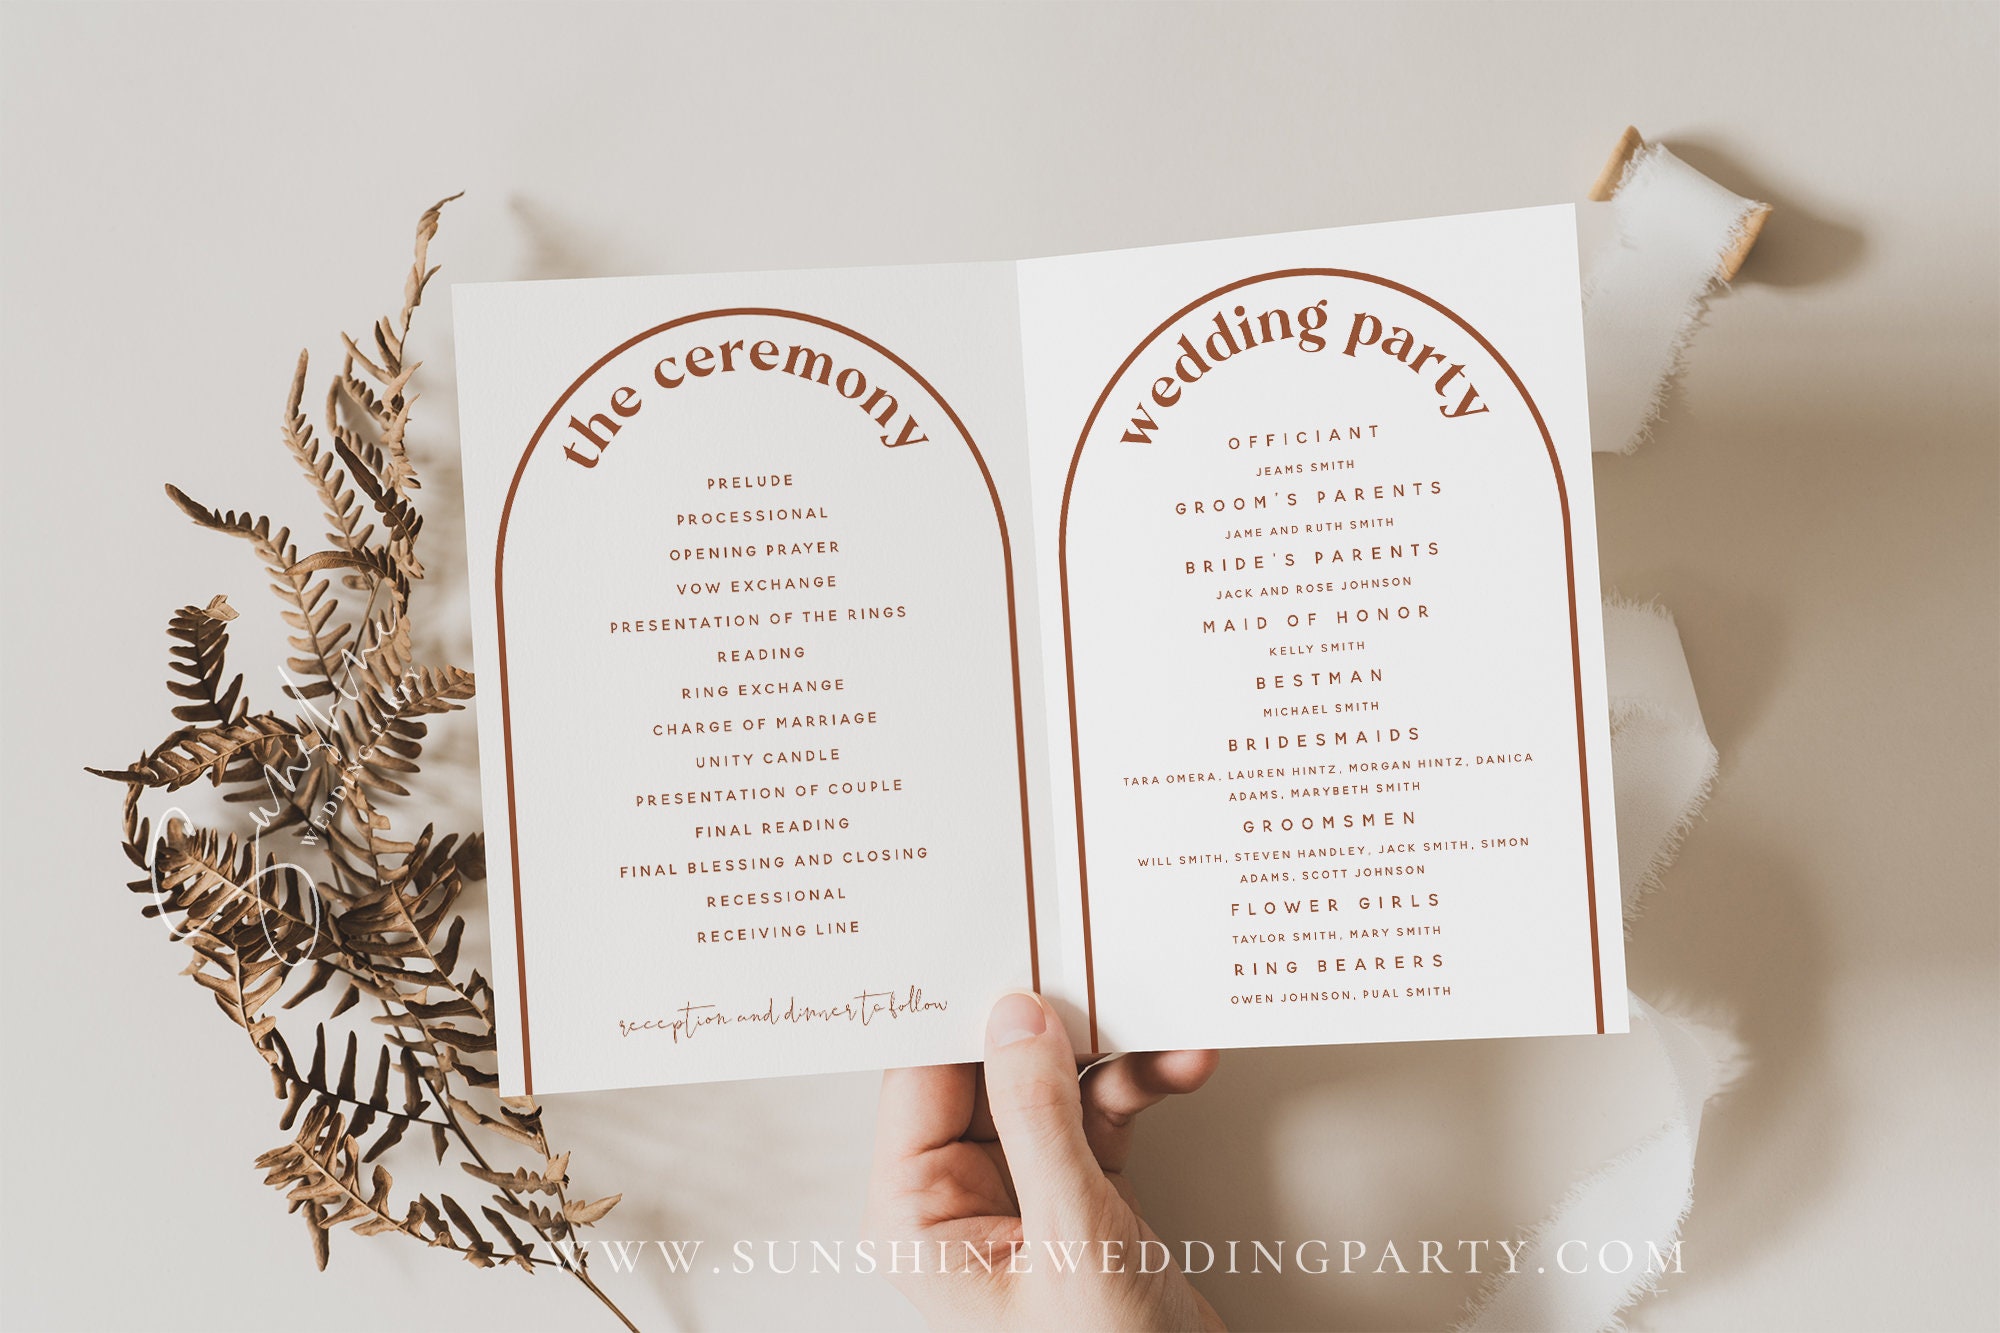 the ceremony
PRELUDE
PROCESSIONAL
OPENING PRAYER
VOW EXCHANGE
PRESENTATION OF THE RINGS
READING
RING EXCHANGE
CHARGE OF MARRIAGE
UNITY CANDLE
PRESENTATION OF COUPLE
FINAL READING
FINAL BLESSING AND CLOSING
RECESSIONAL
RECEIVING LINE
reception and dinner to follow
wedding party
OFFICIANT
JEAMS SMITH
GROOM'S PARENTS
JAME AND RUTH SMITH
BRIDE'S PARENTS
JACK AND ROSE JOHNSON
MAID OF HONOR
KELLY SMITH
BESTMAN
MICHAEL SMITH
BRIDESMAIDS
TARA OMERA, LAUREN HINTZ, MORGAN HINTZ, DANICA
ADAMS, MARYBETH SMITH
GROOMSMEN
WILL SMITH, STEVEN HANDLEY, JACK SMITH, SIMON
ADAMS, SCOTT JOHNSON
FLOWER GIRLS
TAYLOR SMITH, MARY SMITH
RING BEARERS
OWEN JOHNSON, PUAL SMITH
Sunshine
WEDDING PARTY
WWW.SUNSHINEWEDDINGPARTY.COM